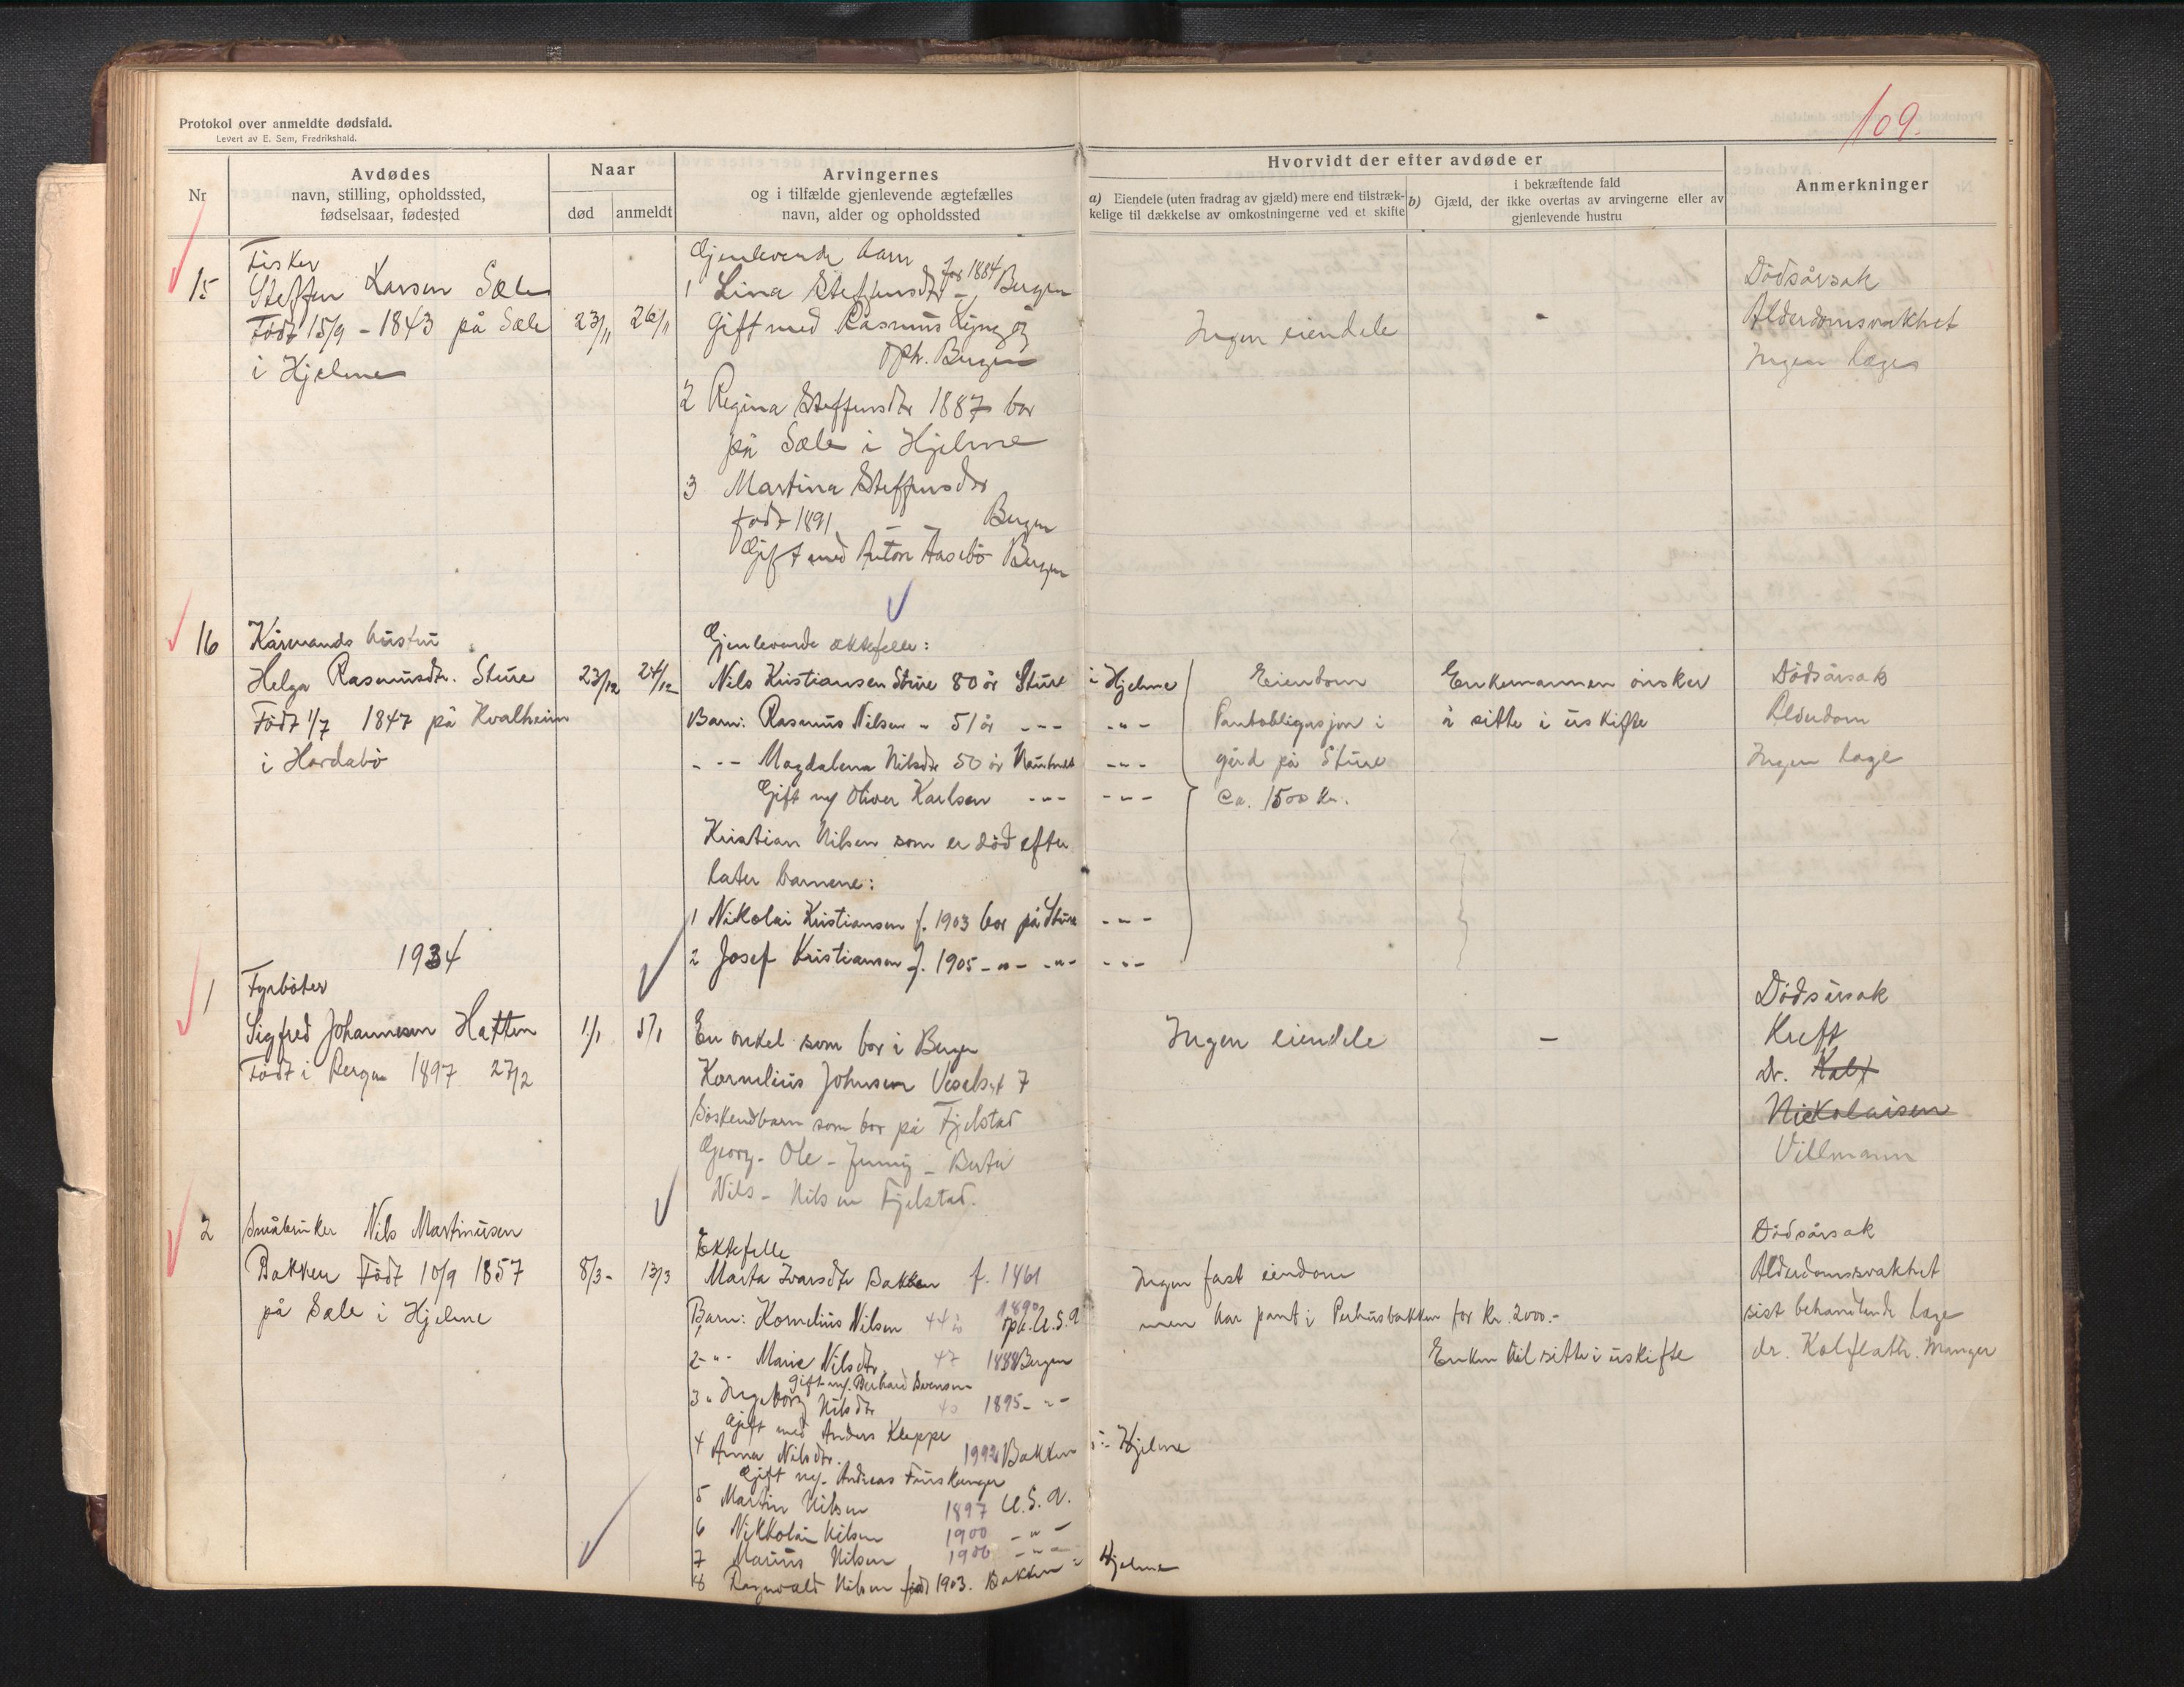 109.
Protokol over anmeldte dødsfald.
Levert av E. Sem, Fredrikshald.
Nr
Avdødes
navn, stilling, opholdssted,
fødselsaar, fødested
Naar
død
anmeldt
Arvingernes
og i tilfælde gjenlevende ægtefælles
navn, alder og opholdssted
Hvorvidt der efter avdøde er
a) Eiendele (uten fradrag av gjæld) mere end tilstræk-
kelige til dækkelse av omkostningerne ved et skifte
b) i bekræftende fald
Gjæld, der ikke overtas av arvingerne eller av
gjenlevende hustru
Anmerkninger
15
Fisker
Steffen Larsen Sæle
Født 15/9 - 1843 på Sæle
i Hjelme
23/11
26/11
Gjenlevende barn
1 Lina Steffensdtr før 1884 Bergen
Gift med Rasmus
oph. Bergen
2 Regina Steffensdtr 1887 bor
på Sæle i Hjelme
3 Martina Steffensdtr
født 1891 Bergen
Gift med Anton Aasebø Bergen
Ingen eiendele
-
Dødsårsak
Alderdomsvakhet
Ingen læge
16
Kårmands hustru
Helga Rasmusdtr. Sture
Født 1/7 1847 på Kvalheim
i Hordabø
23/12
24/12
Gjenlevende ektefelle:
Nils Kristiansen Sture 80 år Sture i Hjelme
Barn: Rasmus Nilsen - 51 år - " - - " -
- " - Magdalena Nilsdtr 50 år - " -
Gift m/ Oliver Karlsen - " - - " -
Kristian Nilsen som er død efter
later barnene:
1 Nikolai Kristiansen f. 1903 bor på Sture - " -
2 Josef Kristiansen f. 1905 - " - - " - - " -
Eiendom
Pantobligasjon i
gård på Sture
ca. 1500 kr.
Enkemannen ønsker
å sitte i uskifte
Dødsårsak
Alderdom
Ingen læge
1934
1
Fyrbøter
Sigfred Johannesen Hatten
Født i Bergen 1897 27/2
1/1
5/1
En onkel som bor i Bergen
Kornelius Johnsen 7
Søskendbarn som bor på Fjelstad
Georg - Ole - Jenny - Berta
Nils - Nilsen Fjelstad.
Ingen eiendele
-
Dødsårsak
Kreft
Dr. Kalf
Nickolaisen
Villmann
2
Småbruker Nils Martinusen
Bakken Født 10/9 1857
på Sæle i Hjelme
8/3 -
13/3
Ektefelle
Marta Ivarsdtr Bakken f. 1861
Barn: 1 Kornelius Nilsen 44 år 1890 oph. U.S.A
2 - " - Marie Nilsdtr 47 1888 Bergen
gift m/. Berhard Svensen
3 " Ingeborg Nilsdtr 40 1895 - " -
Gift med Anders Kleppe
4 Anna Nilsdtr. 1992 Bakken i Hjelme
Gift m/. Andreas
5 Martin Nilsen 1897 U.S.A.
6 Nikkolai Nilsen 1900 - " -
7 Marius Nilsen 1906 - " -
8 Ragnvald Nilsen født 1903. Bakken i Hjelme
Ingen fast eiendom
men har pant i Perhusbakken for kr. 2000.-
Enken vil sitte i uskifte
Dødsårsak
Alderdomssvakhet
sist behandlende læge
dr. Kalflath. Manger